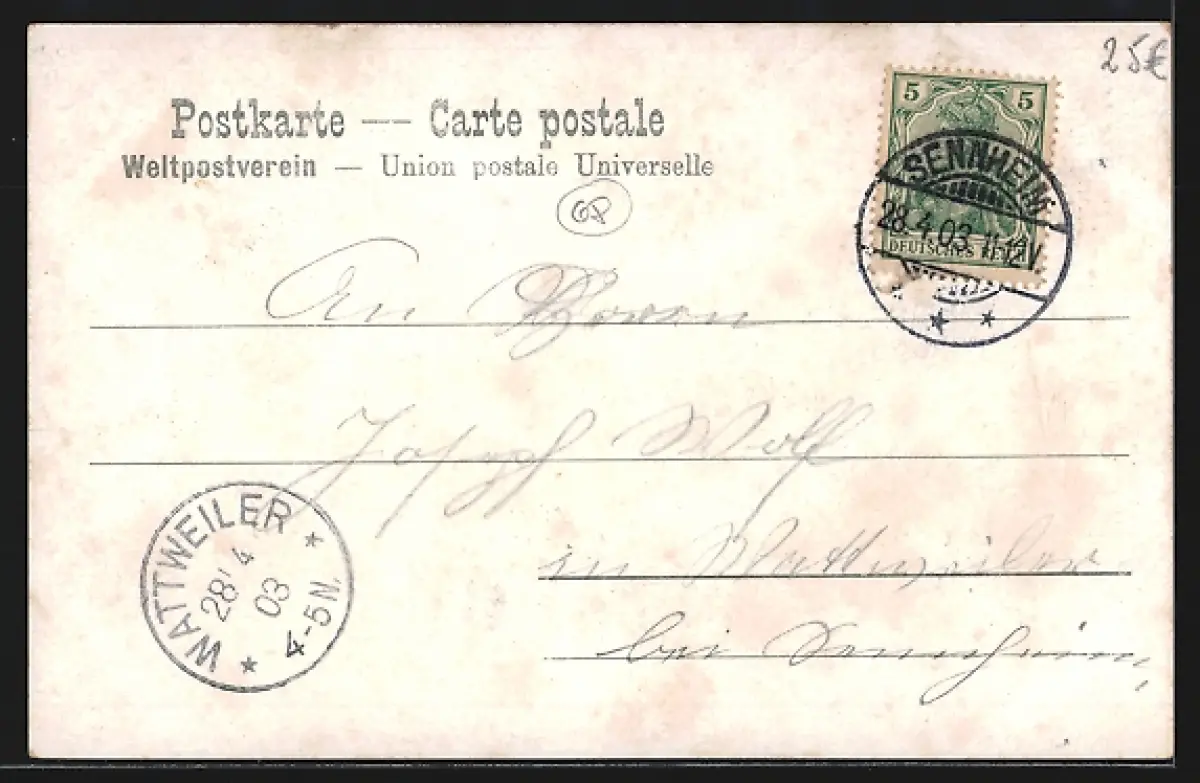 25€
Postkarte — Carte postale
Weltpostverein — Union postale Universelle
GP
5 5
DEUTSCHES REICH
SENNHEIM
28.4.03. 11-12V.
An Herrn
Joseph Wolf
in Wattweiler
bei Sennheim,
WATTWEILER
28/4
03
4-5N.